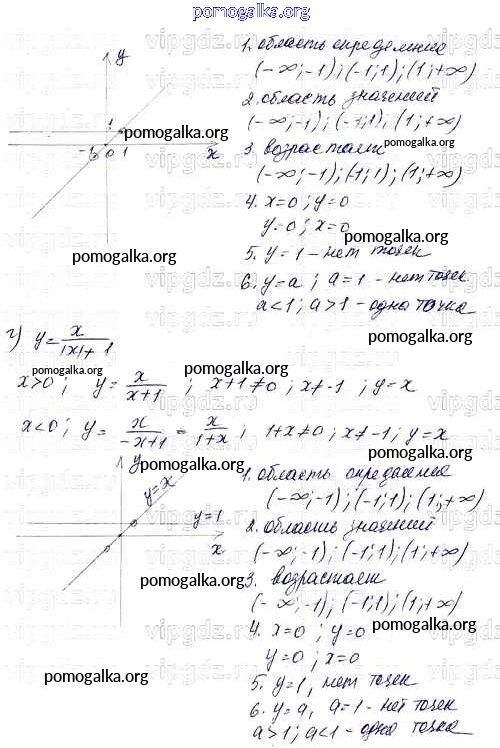 pomogalka.org
y
1
-1 0 1
x
1. область определения
(-∞;-1);(-1;1);(1;+∞)
2. область значений
(-∞;-1);(-1;1);(1;+∞)
pomogalka.org
3. возрастает
(-∞;-1);(-1;1);(1;+∞)
pomogalka.org
4. x=0; y=0
y=0; x=0
pomogalka.org
5. y=1 - нет точек
pomogalka.org
6. y=a; a=1 - нет точек
a<1; a>1 - одна точка
pomogalka.org
г) y = x/|x|+1
pomogalka.org
x>0; y = x/x+1; x+1≠0; x≠-1; y=x
pomogalka.org
x<0; y = x/-x+1 = x/1+x; 1+x≠0; x≠-1; y=x
pomogalka.org
y
y=x
y=1
x
1. область определения
(-∞;-1);(-1;1);(1;+∞)
pomogalka.org
2. область значений
(-∞;-1);(-1;1);(1;+∞)
pomogalka.org
3. возрастает
(-∞;-1);(-1;1);(1;+∞)
4. x=0; y=0
pomogalka.org
y=0; x=0
pomogalka.org
5. y=1, нет точек
6. y=a, a=1 - нет точек
a>1; a<1 - одна точка
pomogalka.org